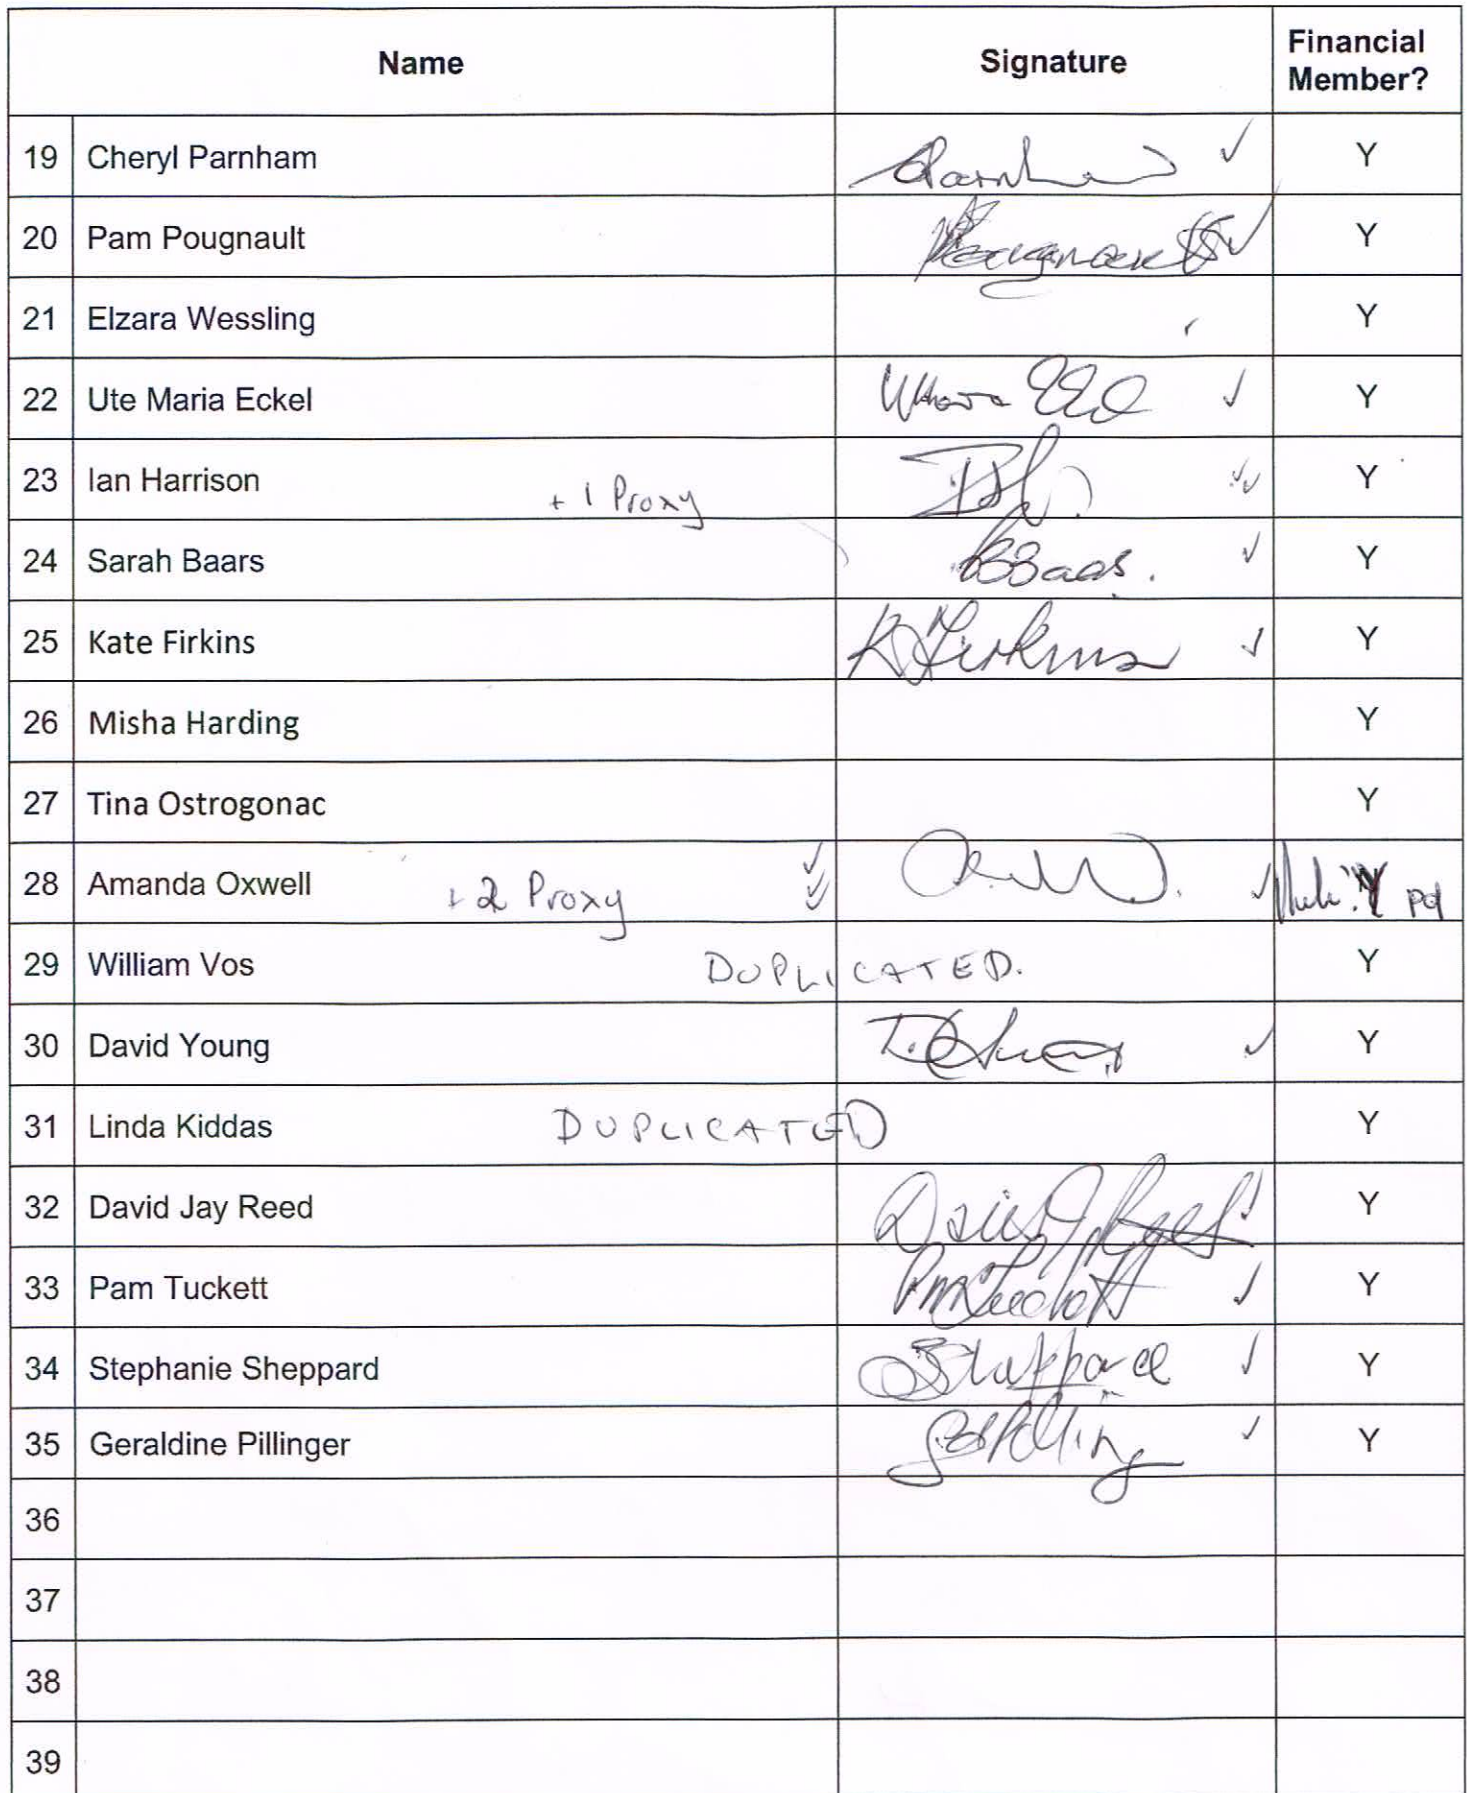 Name Signature Financial Member?
19 Cheryl Parnham Y
20 Pam Pougnault Y
21 Elzara Wessling Y
22 Ute Maria Eckel Y
23 Ian Harrison + 1 Proxy Y
24 Sarah Baars Y
25 Kate Firkins K Firkins Y
26 Misha Harding Y
27 Tina Ostrogonac Y
28 Amanda Oxwell + 2 Proxy Y pd
29 William Vos DUPLICATED. Y
30 David Young Y
31 Linda Kiddas DUPLICATED Y
32 David Jay Reed David J Reed Y
33 Pam Tuckett Y
34 Stephanie Sheppard S Sheppard Y
35 Geraldine Pillinger Y
36
37
38
39